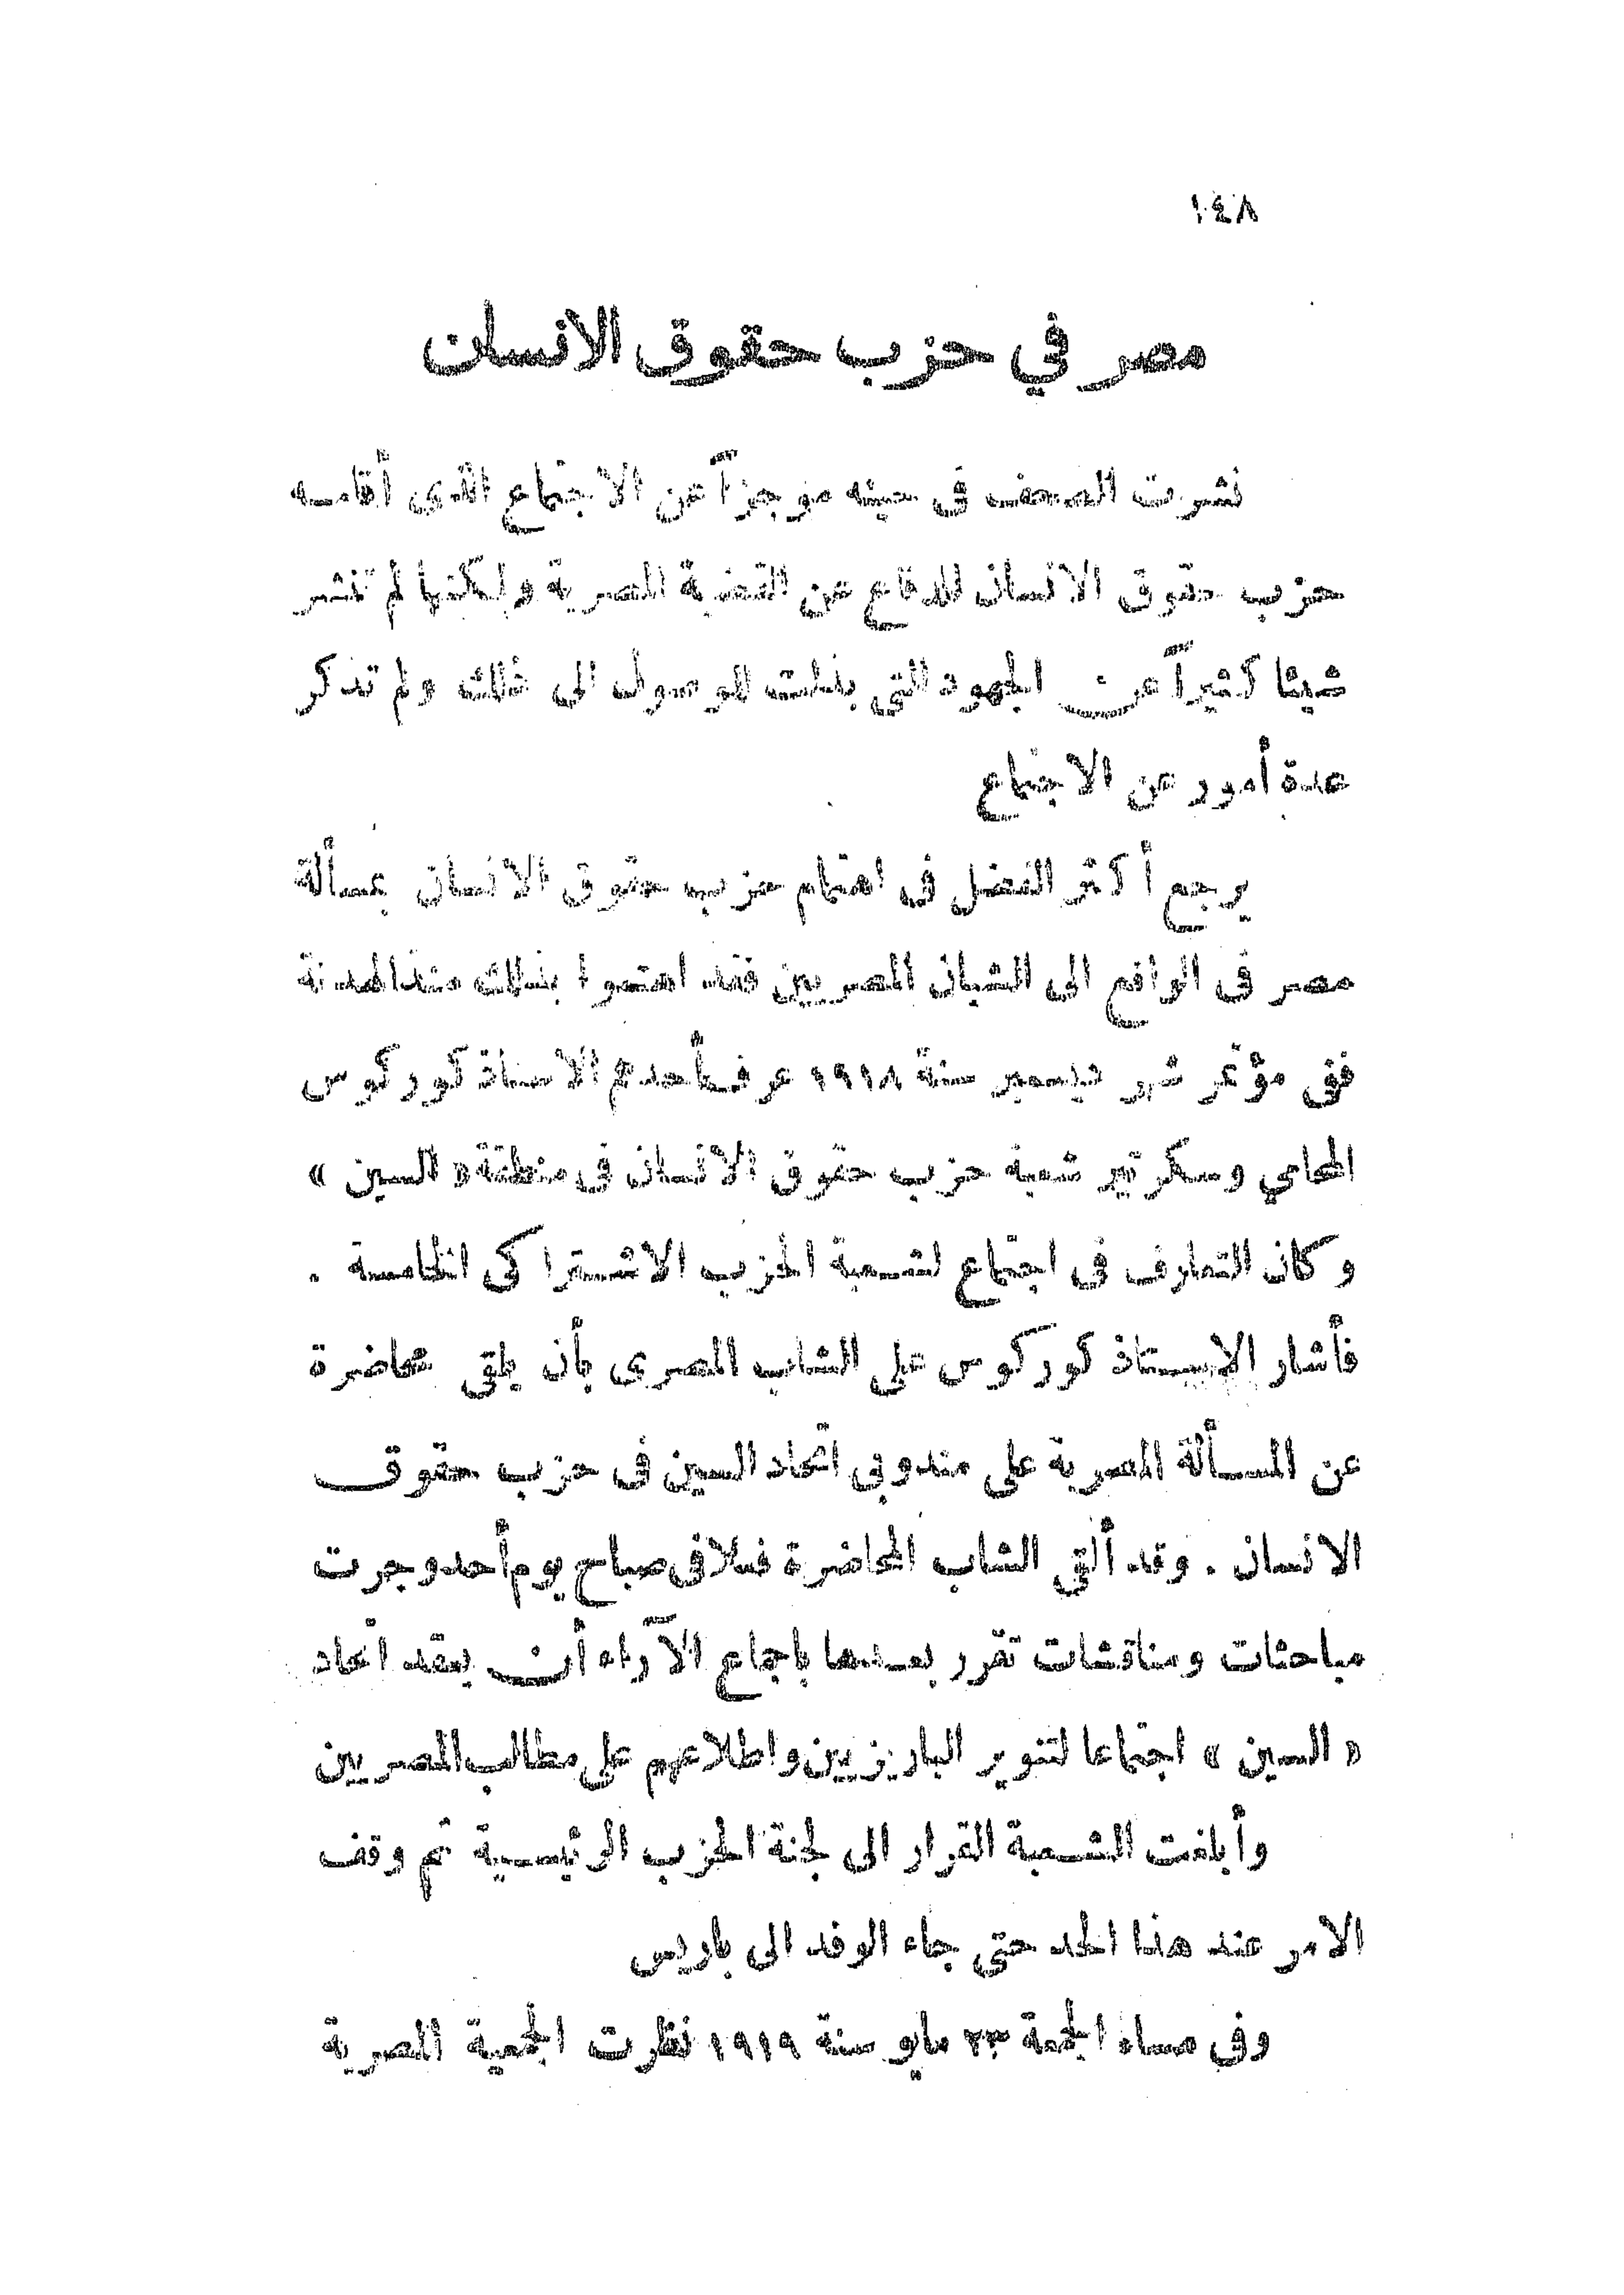 ١٤٨
مصر في حزب حقوق الانسان
نشرت الصحف فى حينه موجزاً عن الاجتماع الذى أقامه
حزب حقوق الانسان للدفاع عن القضية المصرية ولكنها لم تنشر
شيئا كثيراً عن الجهود التى بذلت للوصول الى ذلك ولم تذكر
عدة أمور عن الاجتماع
يرجع أكثر الفضل فى اهتمام حزب حقوق الانسان بمسألة
مصر فى الواقع الى الشبان المصريين فقد اهتموا بذلك منذ الهدنة
ففى مؤتمر شهر ديسمبر سنة ١٩١٨ عرف أحدهم الاستاذ كوركوس
المحامي وسكرتير شعبة حزب حقوق الانسان فى منطقة « السين »
وكان التعارف فى اجتماع لشعبة الحزب الاشتراكى الخامسة .
فأشار الاستاذ كوركوس على الشاب المصرى بأن يلقى محاضرة
عن المسألة المصرية على مندوبى اتحاد السين فى حزب حقوق
الانسان . وقد ألقى الشاب المحاضرة فعلا فى صباح يوم أحد وجرت
مباحثات ومناقشات تقرر بعدها باجماع الآراء أن يعقد اتحاد
« السين » اجتماعا لتنوير الباريزيين واطلاعهم على مطالب المصريين
وأبلغت الشعبة القرار الى لجنة الحزب الرئيسية ثم وقف
الامر عند هذا الحد حتى جاء الوفد الى باريس
وفى مساء الجمعة ٢٣ مايو سنة ١٩١٩ نظرت الجمعية المصرية